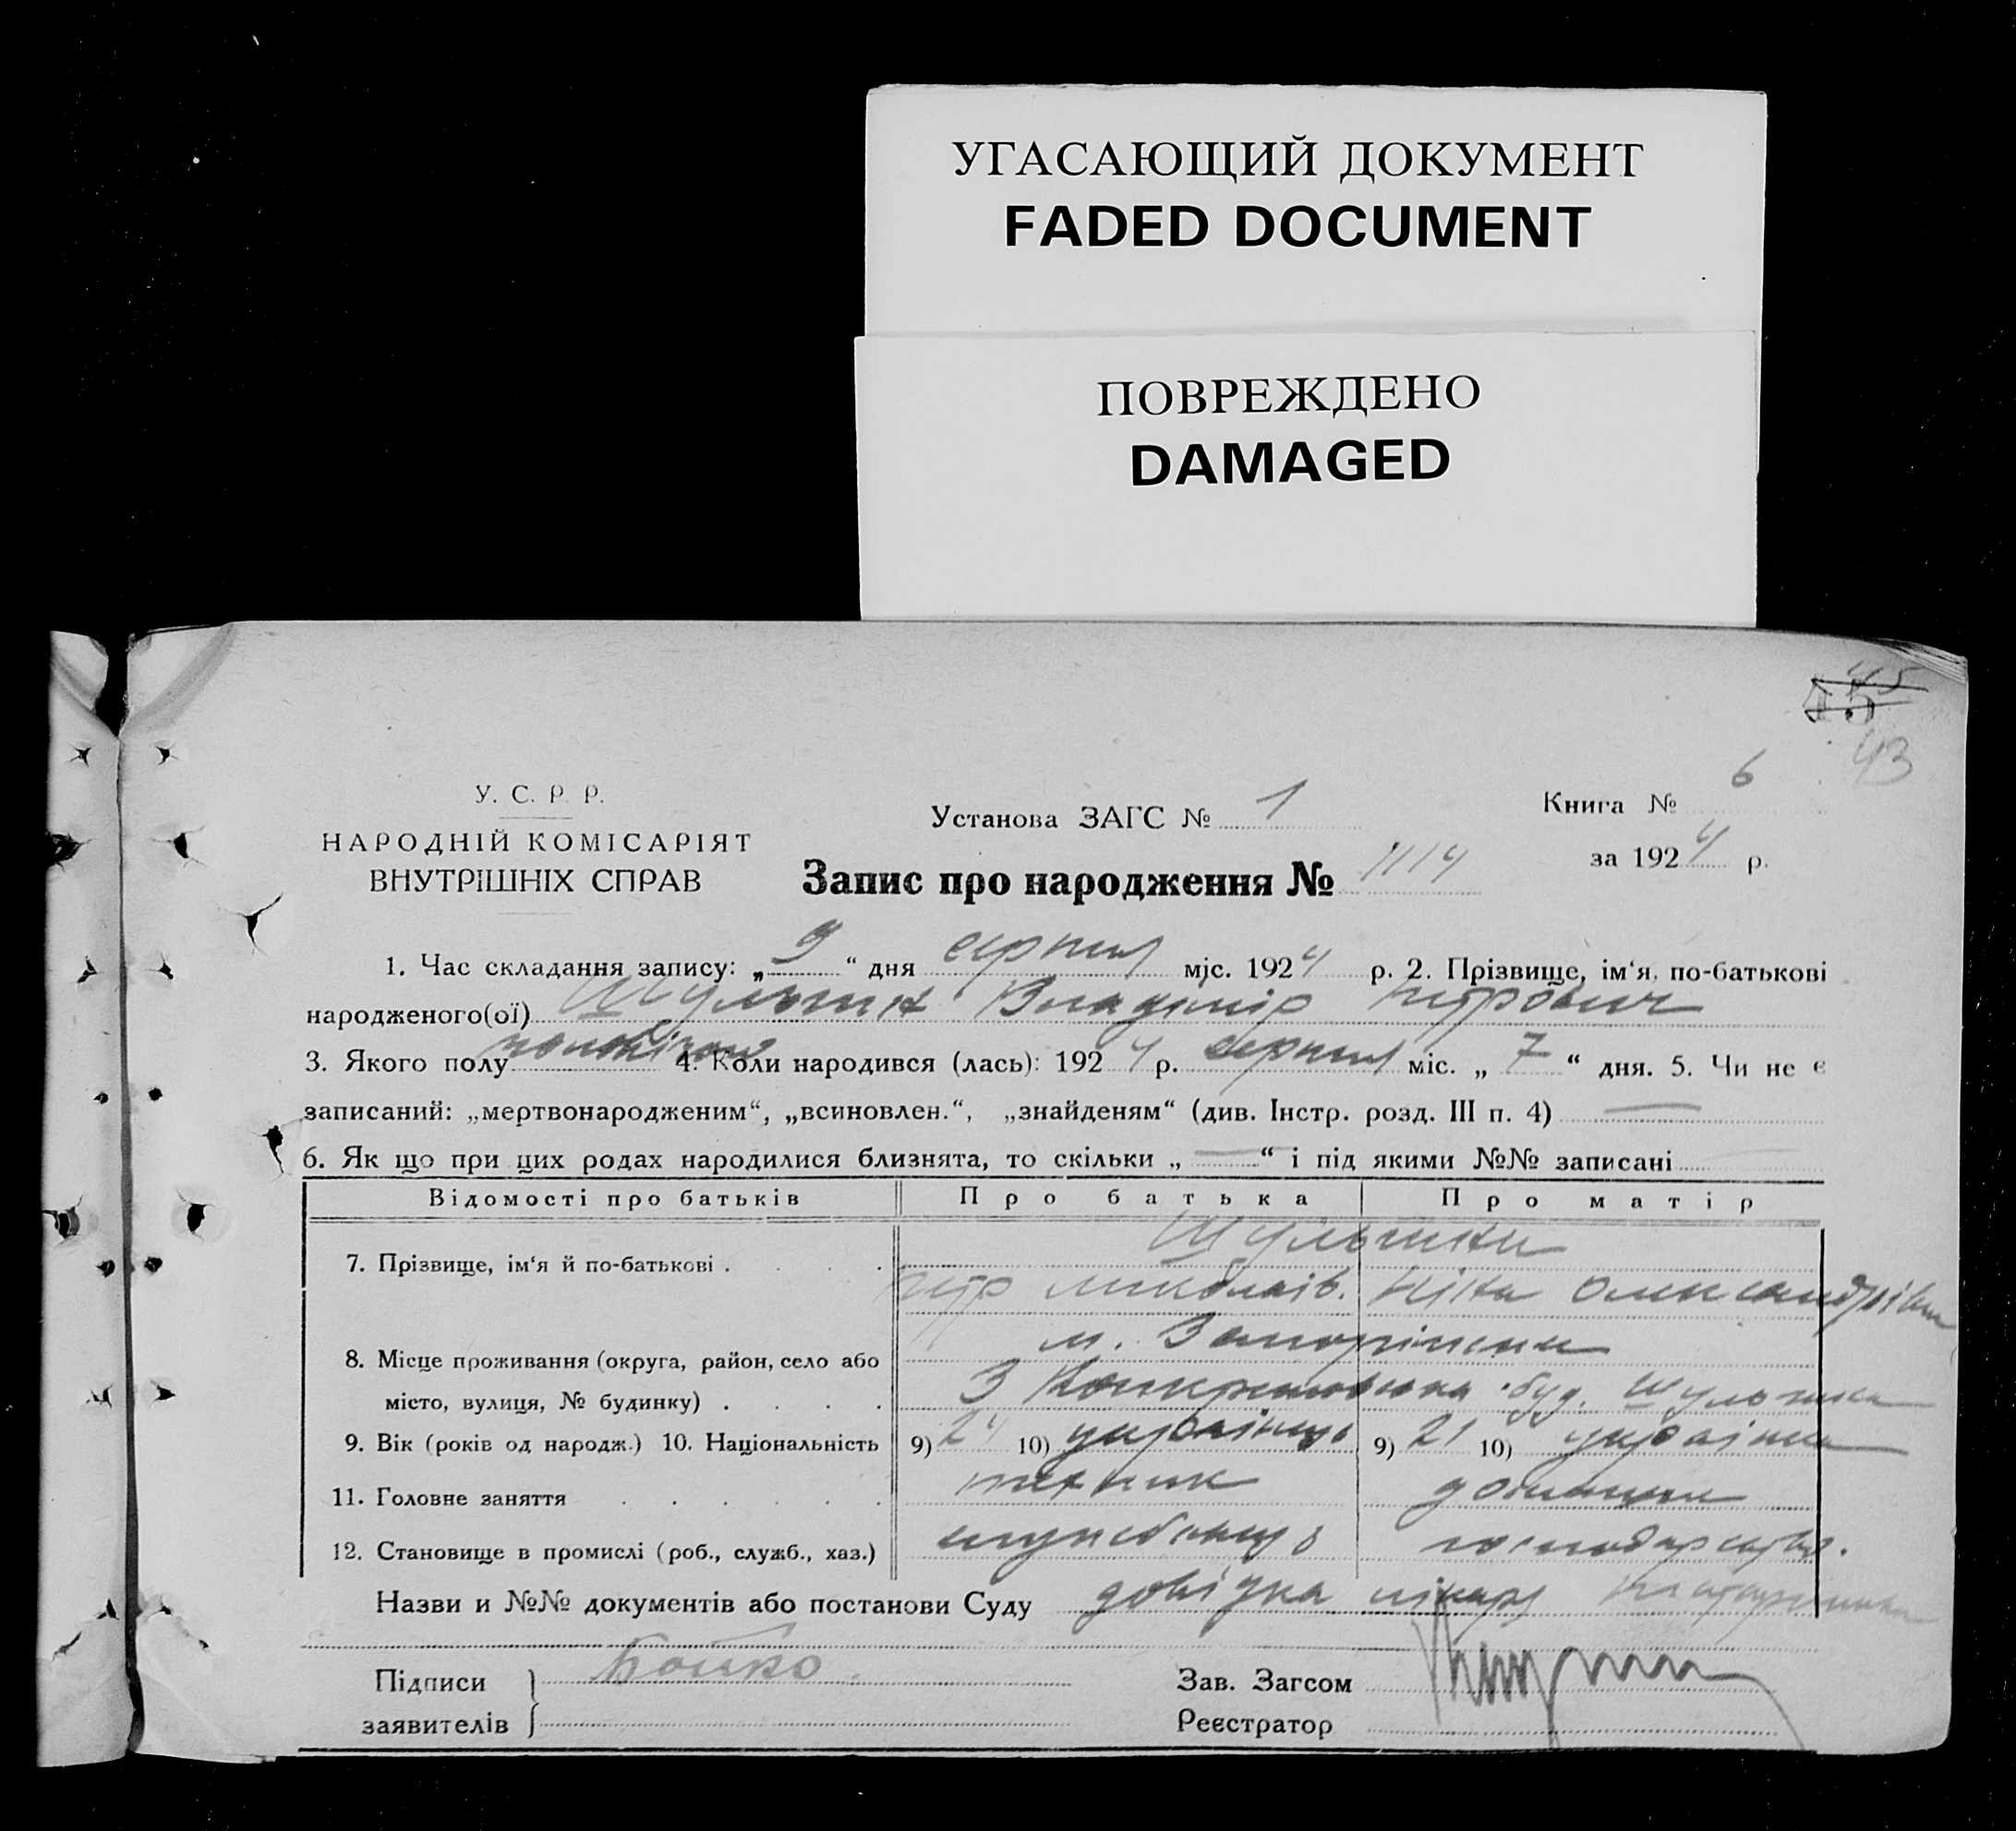 УГАСАЮЩИЙ ДОКУМЕНТ
FADED DOCUMENT
ПОВРЕЖДЕНО
DAMAGED
43
У. С. Р. Р.
НАРОДНІЙ КОМІСАРІЯТ
ВНУТРІШНІХ СПРАВ
Установа ЗАГС № 1
Книга № 6
за 1924 р.
Запис про народження № 1114
1. Час складання запису: „ 9 “ дня серпня міс. 1924 р. 2. Прізвище, ім‘я, по-батькові
народженого(ої) Владимір Петрович
3. Якого полу 4. Коли народився (лась): 1924 р. серпня міс. „ 7 “ дня. 5. Чи не є
записаний: „мертвонародженим“, „всиновлен.“, „знайденям“ (див. Інстр. розд. III п. 4) —
6. Як що при цих родах народилися близнята, то скільки „ — “ і під якими №№ записані
Відомості про батьків Про батька Про матір
7. Прізвище, ім‘я й по-батькові
Петр Миколаїв. Ніна Олександрівна
8. Місце проживання (округа, район, село або
місто, вулиця, № будинку)
м. Запоріжжя
3 буд.
9. Вік (років од народж.) 10. Національність 9) 24 10) українець 9) 21 10) українка
11. Головне заняття технік домашнє
12. Становище в промислі (роб., служб., хаз.) службовець господарство.
Назви и №№ документів або постанови Суду довідка лікаря
Підписи
заявителів
Бойко
Зав. Загсом
Реєстратор